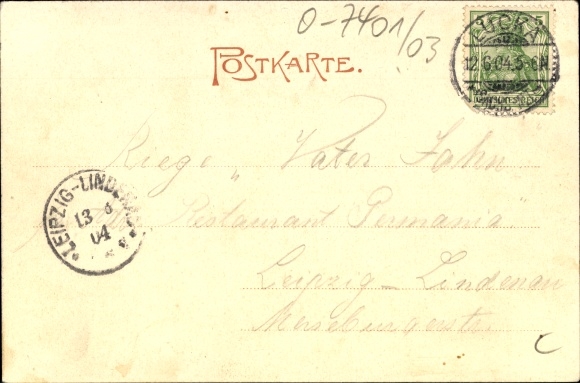 0-7401/03
POSTKARTE.
5
LUCKA
12.6.04.5-6N.
Riege „Vater Jahn
LEIPZIG-LINDENAU
13 6
04
Restaurant Germania"
Leipzig-Lindenau
Merseburgerstr.